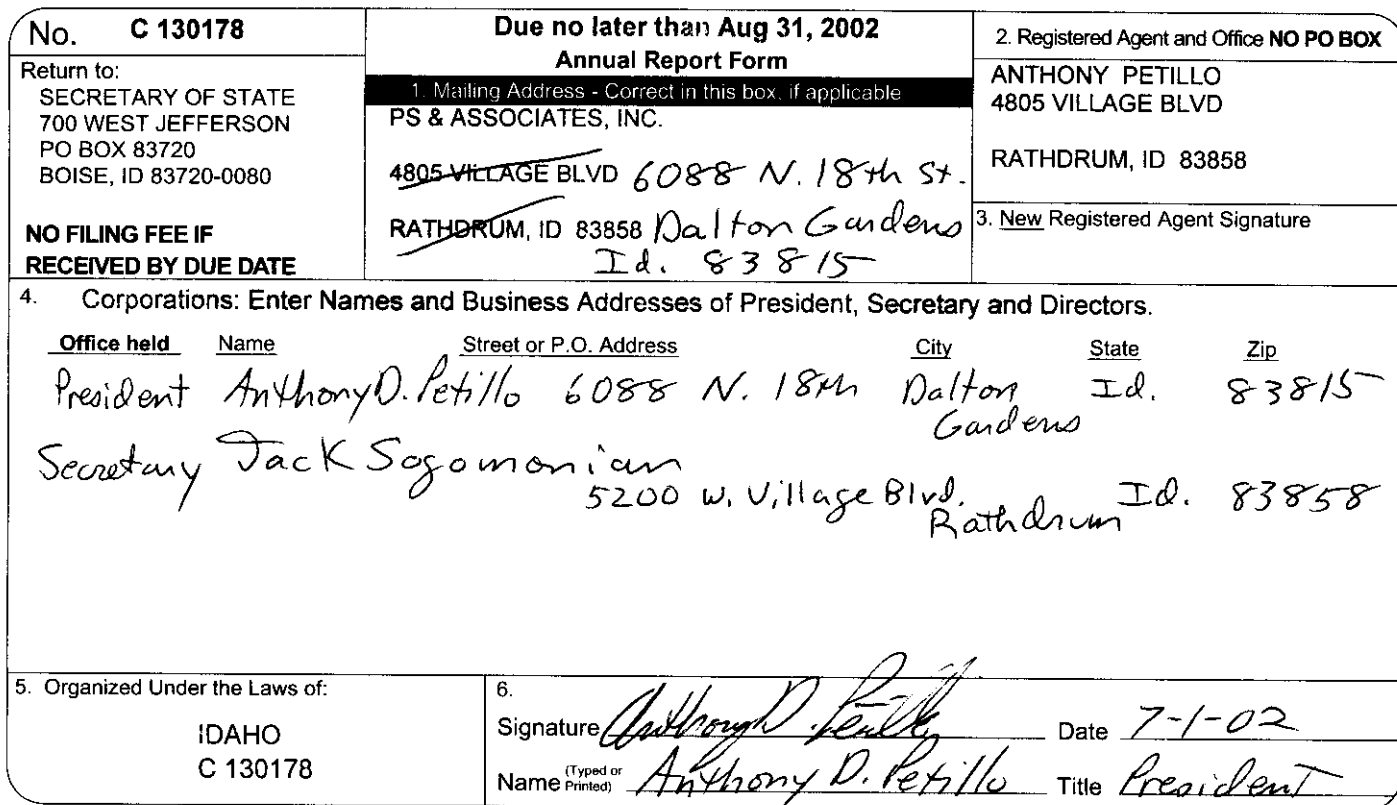 No. C 130178
Return to:
SECRETARY OF STATE
700 WEST JEFFERSON
PO BOX 83720
BOISE, ID 83720-0080
NO FILING FEE IF
RECEIVED BY DUE DATE
Due no later than Aug 31, 2002
Annual Report Form
1. Mailing Address - Correct in this box, if applicable
PS & ASSOCIATES, INC.
4805 VILLAGE BLVD 6088 N. 18th St.
RATHDRUM, ID 83858 Dalton Gardens
Id. 83815
2. Registered Agent and Office NO PO BOX
ANTHONY PETILLO
4805 VILLAGE BLVD
RATHDRUM, ID 83858
3. New Registered Agent Signature
4. Corporations: Enter Names and Business Addresses of President, Secretary and Directors.
Office held Name Street or P.O. Address City State Zip
President Anthony D. Petillo 6088 N. 18th Dalton Id. 83815
Gardens
Secretary Jack Sogomonian
5200 W. Village Blvd. Id. 83858
Rathdrum
5. Organized Under the Laws of:
IDAHO
C 130178
6.
Signature Anthony D. Petillo Date 7-1-02
Name (Typed or Printed) Anthony D. Petillo Title President